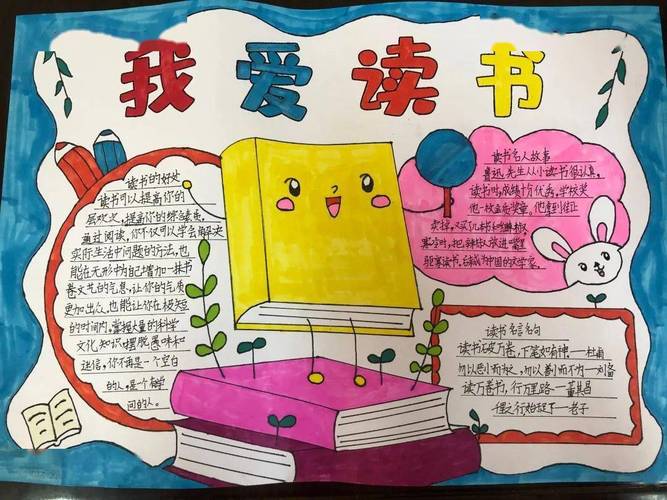 我爱读书
读书的好处
读书可以提高你的
层次，提高你的综合素质，
通过阅读，你不仅可以学会解决
实际生活中问题的方法，也
能在无形中为自己增加一抹书
卷文艺的气息，让你的气质
更加出众，也能让你在极短
的时间内，掌握大量的科学
文化知识，摆脱愚昧和
迷信，你不再是一个空白
的人，是个有学
问的人。
读书名人故事
鲁迅先生从小读书很认真，
读书时，成绩十分优秀，学校奖
他一枚金质奖章。他拿到街上
卖掉，又买几本书和一串辣椒
寒冷时，把辣椒放进嘴里
驱寒读书。后成为中国的文学家。
读书名言名句
读书破万卷，下笔如有神——杜甫
勿以恶小而为之，勿以善小而不为——刘备
读万卷书，行万里路——董其昌
千里之行始于足下——老子